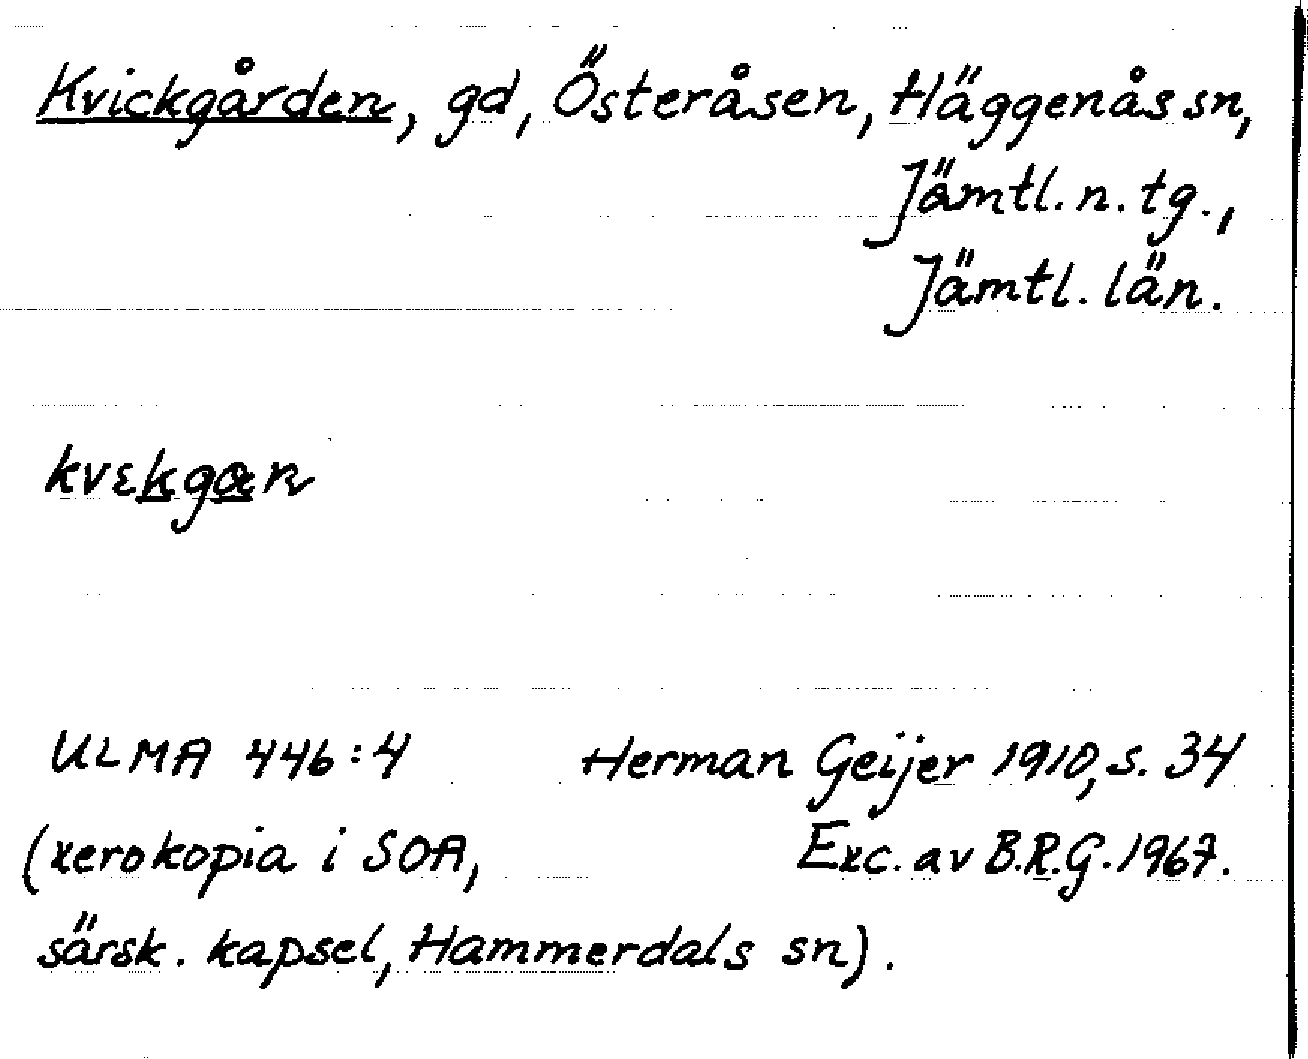 Kvickgården, gd, Österåsen, Häggenås sn,
Jämtl. n. tg.,
Jämtl. län.
kvɛkgæn
ULMA 446:4 Herman Geijer 1910, s. 34
(xerokopia i SOA, Exc. av B.R.G. 1967.
särsk. kapsel, Hammerdals sn).